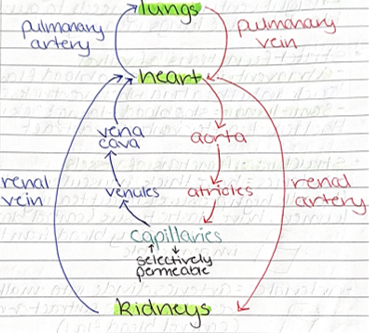 lungs
pulmonary
artery
pulmonary
vein
heart
vena
cava
aorta
renal
vein
venules
atrioles
renal
artery
capillaries
selectively
permeable
kidneys